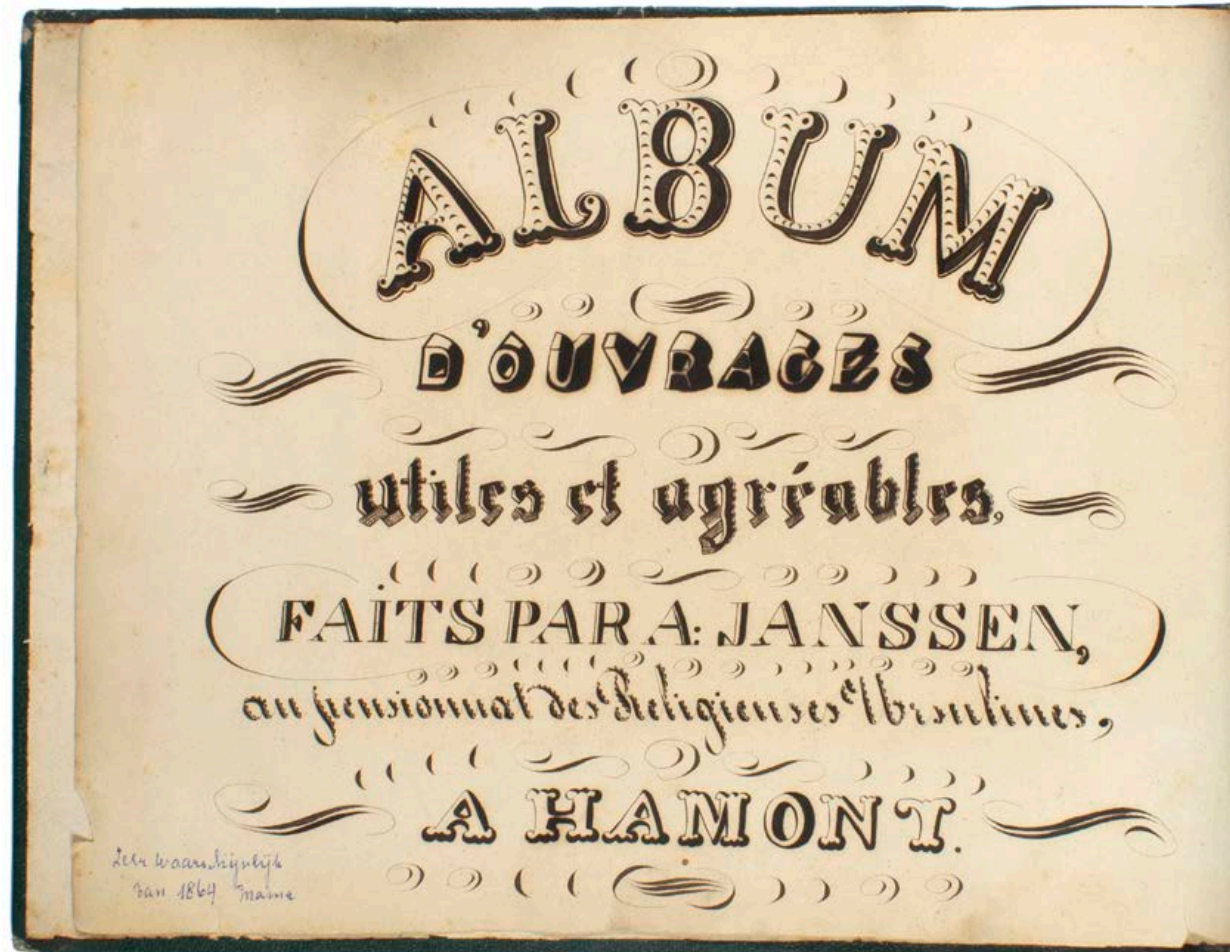 ALBUM
D'OUVRAGES
utiles et agréables,
FAITS PAR A: JANSSEN,
au pensionnat des Religieuses Ursulines,
A HAMONT.
Zeer waarschijnlijk
van 1864